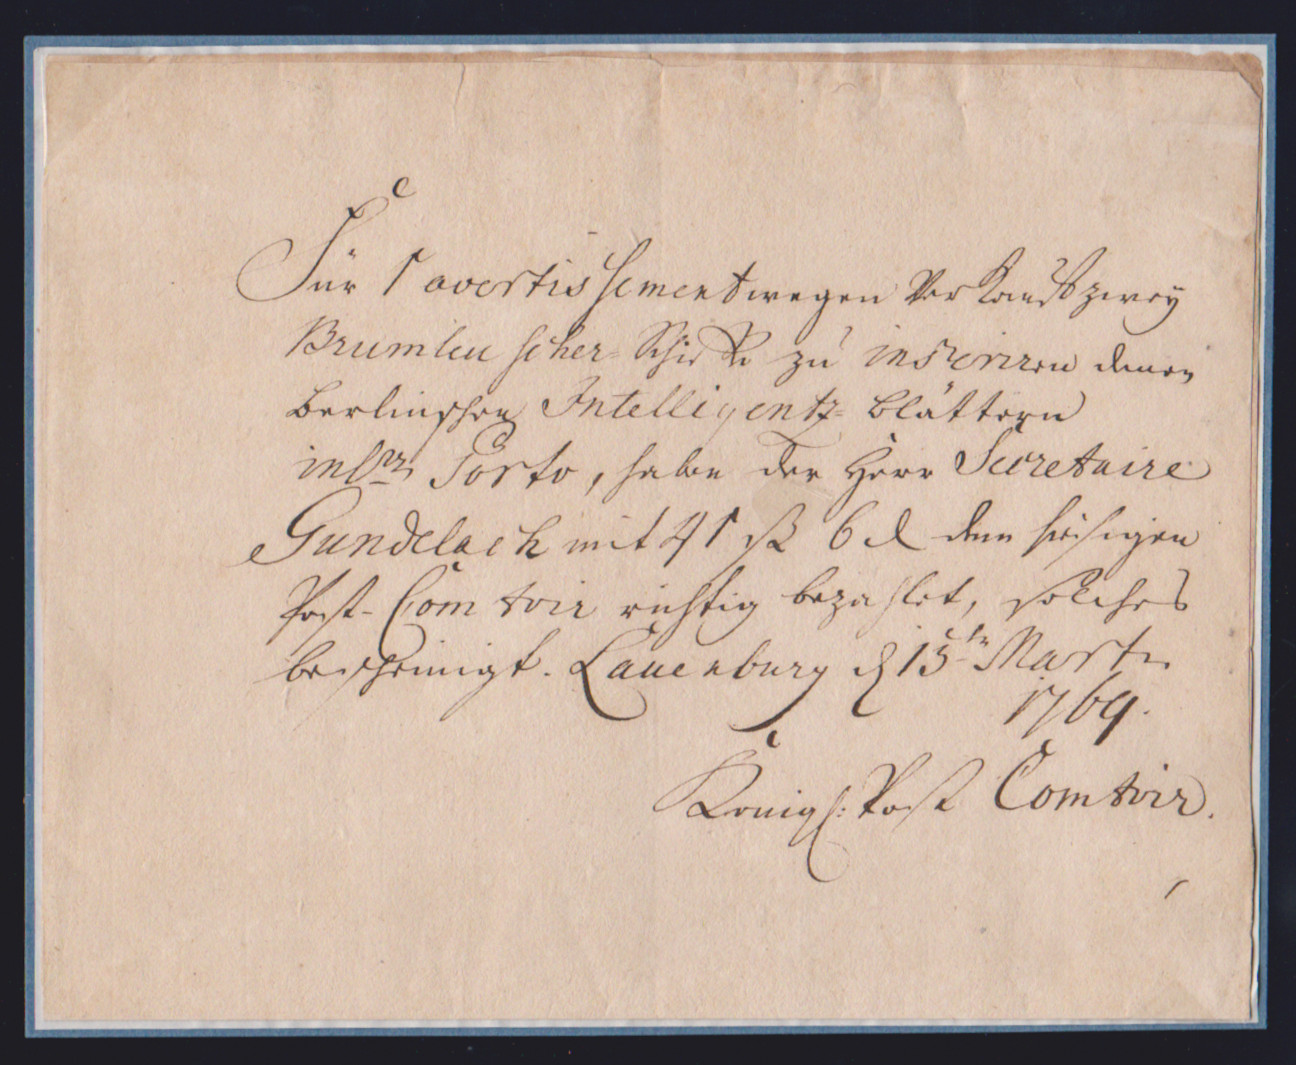 Für 1 avertissement wegen Verkauf zwey
Brumleuscher Schiffe zu inseriren denen
Berlinschen Intelligentz-Blättern
incl. Porto, haben der Herr Secretaire
Gundelach mit 41 ß 6 d dem hiesigen
Post-Comtoir richtig bezahlet, solches
bescheinigt. Lauenburg d 15ten Marti
1769.
Königl: Post Comtoir.